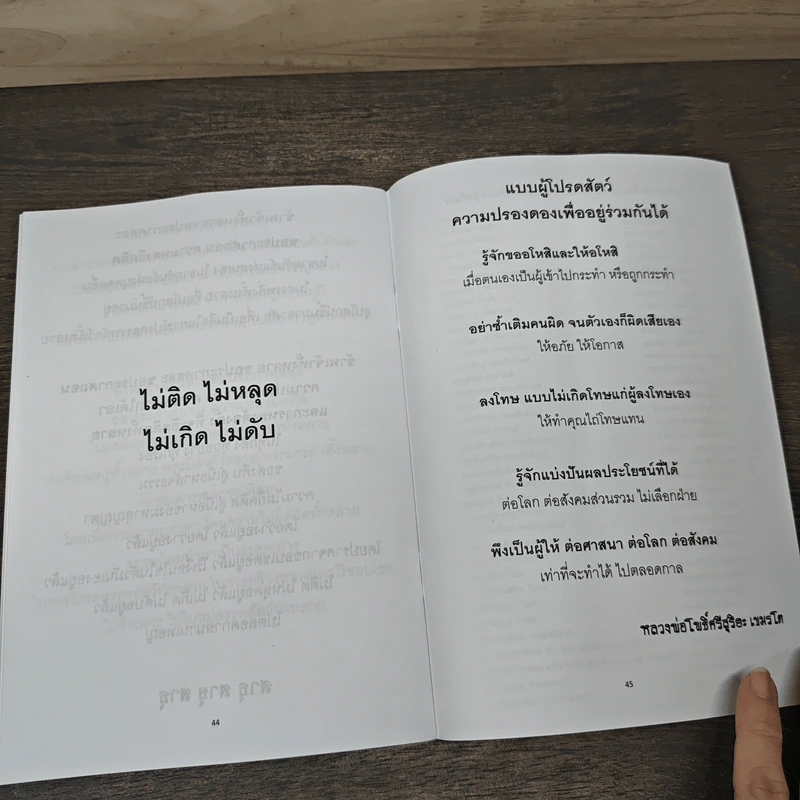 ไม่ติด ไม่หลุด
ไม่เกิด ไม่ดับ
44
แบบผู้โปรดสัตว์
ความปรองดองเพื่ออยู่ร่วมกันได้
รู้จักขออโหสิและให้อโหสิ
เมื่อตนเองเป็นผู้เข้าไปกระทำ หรือถูกกระทำ
อย่าซ้ำเติมคนผิด จนตัวเองก็ผิดเสียเอง
ให้อภัย ให้โอกาส
ลงโทษ แบบไม่เกิดโทษแก่ผู้ลงโทษเอง
ให้ทำคุณไถ่โทษแทน
รู้จักแบ่งปันผลประโยชน์ที่ได้
ต่อโลก ต่อสังคมส่วนรวม ไม่เลือกฝ่าย
พึงเป็นผู้ให้ ต่อศาสนา ต่อโลก ต่อสังคม
เท่าที่จะทำได้ ไปตลอดกาล
หลวงพ่อโพธิ์ศรีสุริยะ เขมรโต
45